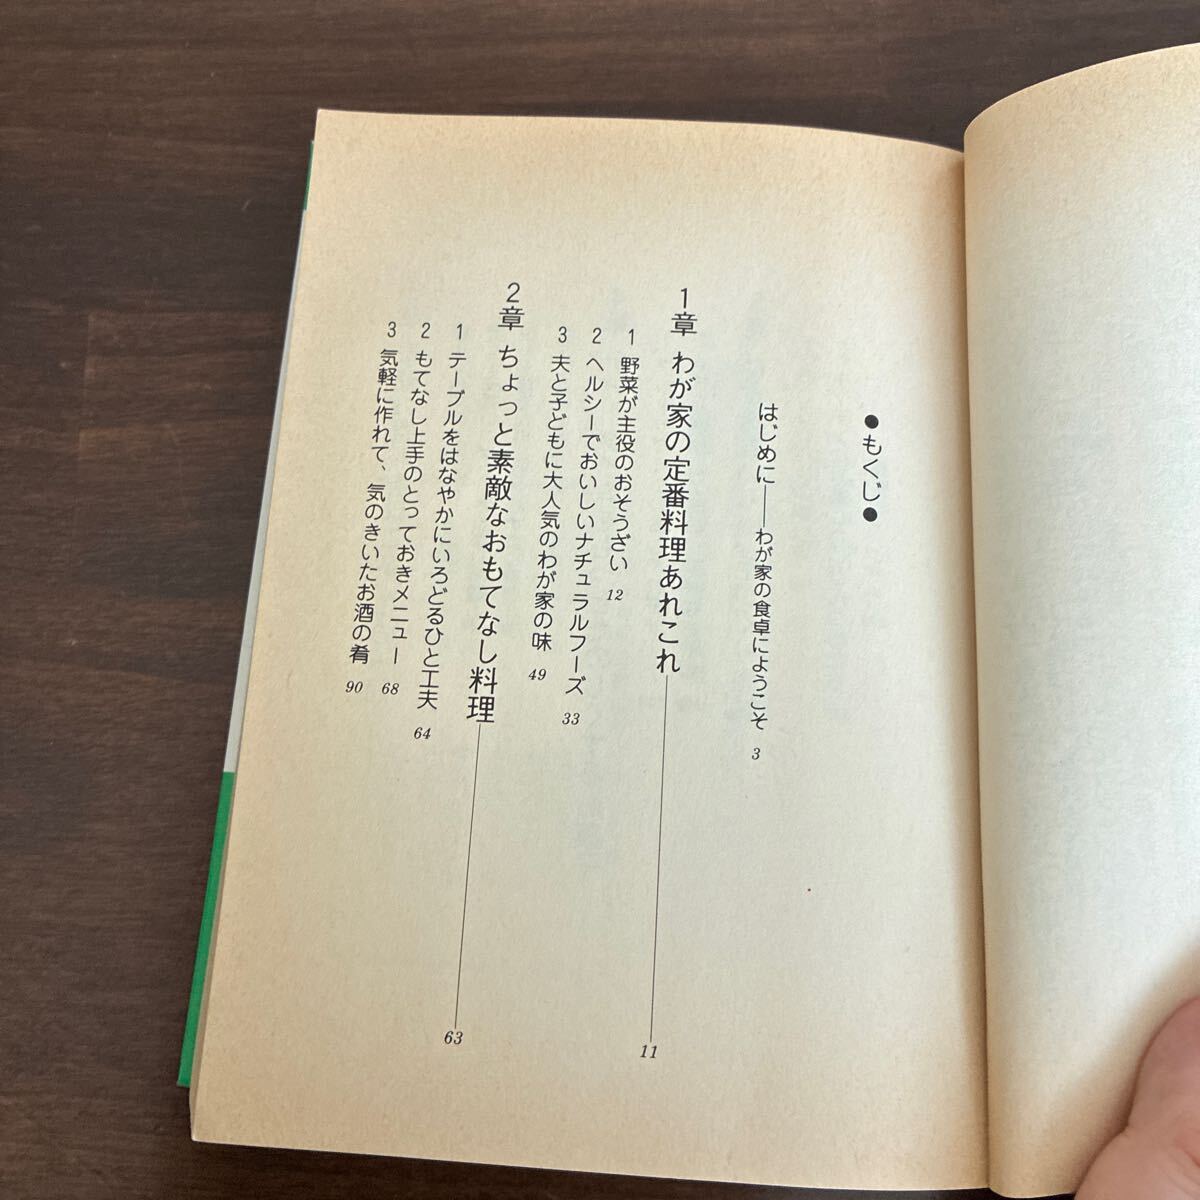 ●もくじ●
はじめに――わが家の食卓にようこそ 3
1章 わが家の定番料理あれこれ 11
1 野菜が主役のおそうざい 12
2 ヘルシーでおいしいナチュラルフーズ 33
3 夫と子どもに大人気のわが家の味 49
2章 ちょっと素敵なおもてなし料理 63
1 テーブルをはなやかにいろどるひと工夫 64
2 もてなし上手のとっておきメニュー 68
3 気軽に作れて、気のきいたお酒の肴 90